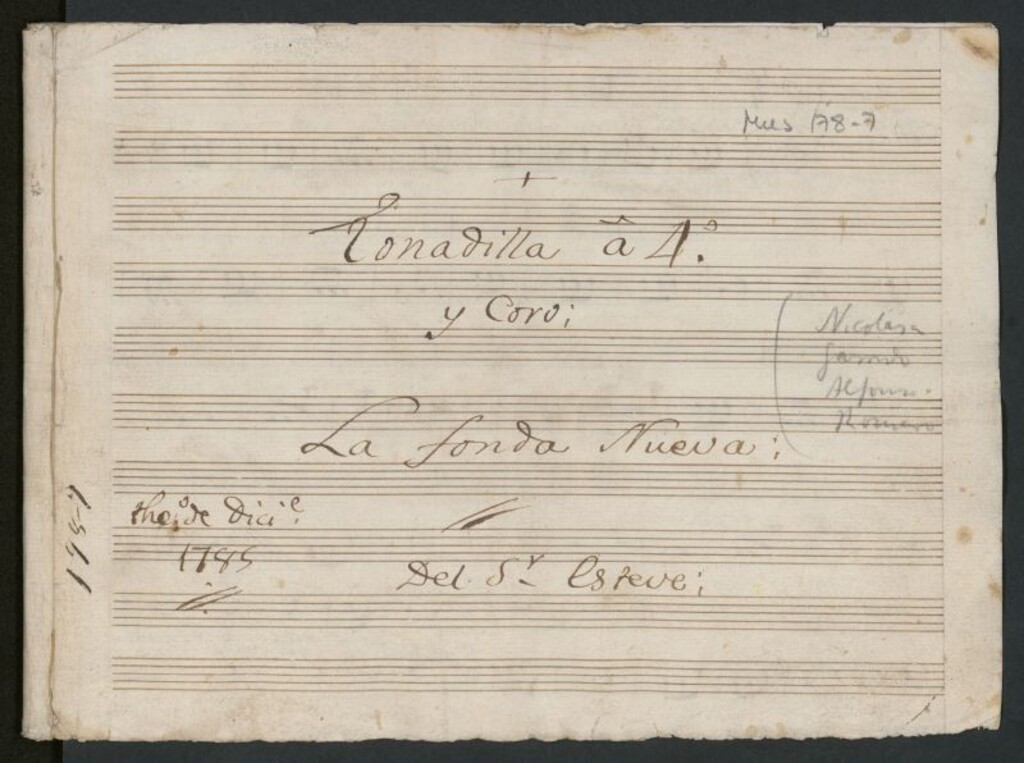 Mus 178-7
+
Tonadilla â 4.º
y Coro;
Nicolasa
Garrido
Alfonso.
Romero
La fonda Nueva;
the.º de Dici.e
1785
Del Sr Esteve;